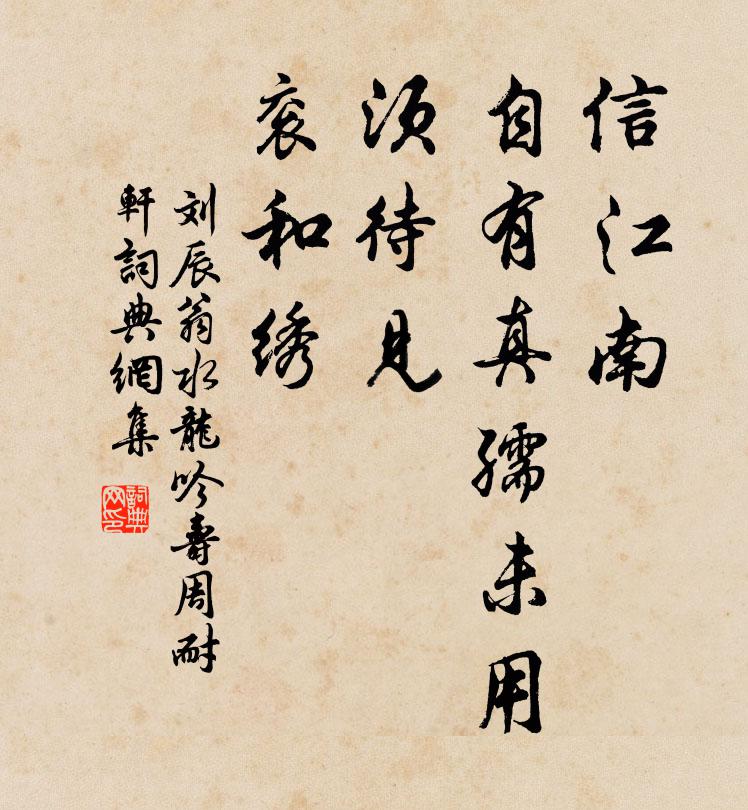 信江南
自有真孺未用
须待見
衮和绣
刘辰翁水龍吟壽周耐
軒詞典網集
詞典网印